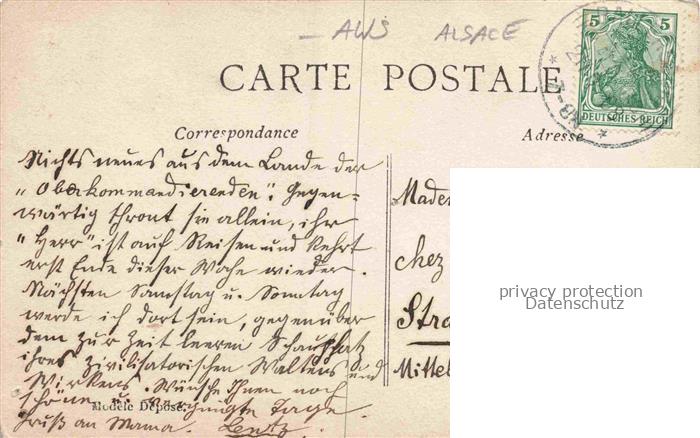 – AWS ALSACE
CARTE POSTALE
5 5
DEUTSCHES REICH
Correspondance
Adresse
Nichts neues aus dem Lande der
„Oberkommandierenden“. Gegen-
wärtig thront sie allein, ihr
„Herr“ ist auf Reisen und kehrt
erst Ende dieser Woche wieder.
Nächsten Samstag u. Sonntag
werde ich dort sein, gegenüber
dem zur Zeit leeren Schauplatz
ihres zivilisatorischen Waltens und
Wirkens. Wünsche Ihnen noch
schöne u. vergnügte Tage.
Gruß an Mama. Lentz.
Modèle Déposé.
Madem
chez
Stra
Mittel
privacy protection
Datenschutz